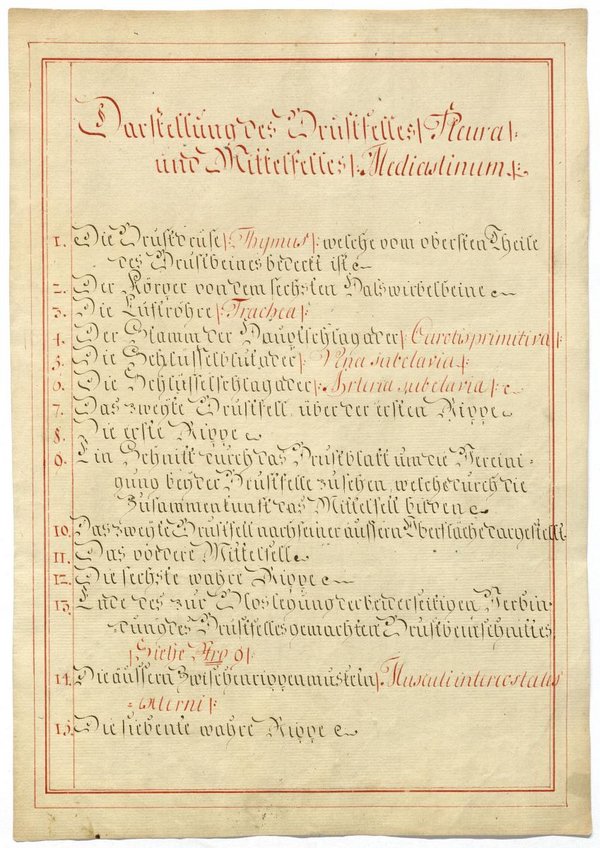 Darstellung des Brustfelles |: Pleura :|
und Mittelfelles |: Mediastinum :|
1. Die Brustdruse |: Thymus :| welche vom obersten Theile
des Brustbeines bedeckt ist
2. Der Körper von dem sechsten Halswirbelbeine
3. Die Luftröhre |: Trachea |:
4. Der Stamm der Hauptschlagader |: Carotis primitiva
5. Die Schlüsselblutader |: Vena subclavia :|
6. Die Schlüsselschlagader |: Arteria subclavia :|
7. Das zweyte Brustfell über der ersten Rippe
8. Die erste Rippe
9. Ein Schnitt durch das Brustblatt um die Vereini-
gung beyder Brustfelle zu sehen, welche durch die
Zusammenkunft das Mittelfell bilden
10. Das zweyte Brustfell nach seiner äussern Oberfläche dargestellt
11. Das vordere Mittelfell
12. Die sechste wahre Rippe
13. Ende des zur Bloslegung der beiderseitigen Verbin
dung des Brustfelles gemachten Brustbeinschnittes
|: Siehe Nro 9 :|
14. Die äussern Zwischenrippenmuskeln |: Musculi intercostales
externi :|
15. Die siebente wahre Rippe